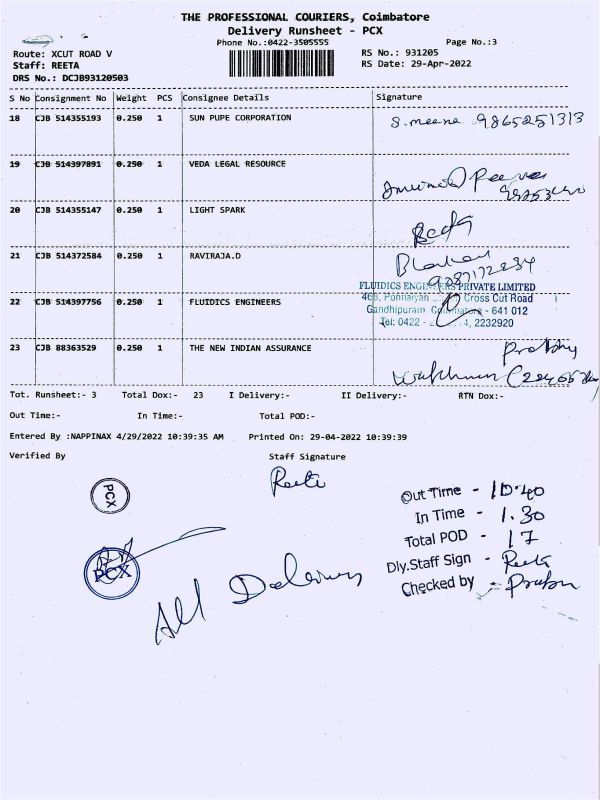 THE PROFESSIONAL COURIERS, Coimbatore
Delivery Runsheet - PCX
Phone No.:0422-3505555
Page No.:3
Route: XCUT ROAD V
RS No.: 931205
Staff: REETA
RS Date: 29-Apr-2022
DRS No.: DCJB93120503
S No Consignment No Weight PCS Consignee Details Signature
18 CJB 514355193 0.250 1 SUN PUPE CORPORATION S.meena 9865251313
19 CJB 514397891 0.250 1 VEDA LEGAL RESOURCE
20 CJB 514355147 0.250 1 LIGHT SPARK Reeta
21 CJB 514372584 0.250 1 RAVIRAJA.D
9287172234
FLUIDICS ENGINEERS PRIVATE LIMITED
22 CJB 514397756 0.250 1 FLUIDICS ENGINEERS
Cross Cut Road
Gandhipuram Coimbatore - 641 012
Tel: 0422 - 2232920
23 CJB 88363529 0.250 1 THE NEW INDIAN ASSURANCE
Tot. Runsheet:- 3 Total Dox:- 23 I Delivery:- II Delivery:- RTN Dox:-
Out Time:- In Time:- Total POD:-
Entered By :NAPPINAX 4/29/2022 10:39:35 AM Printed On: 29-04-2022 10:39:39
Verified By Staff Signature
Reeta
PCX
PCX
Out Time - 10.40
In Time - 1.30
Total POD - 17
Dly.Staff Sign - Reeta
Checked by -
All Delivery